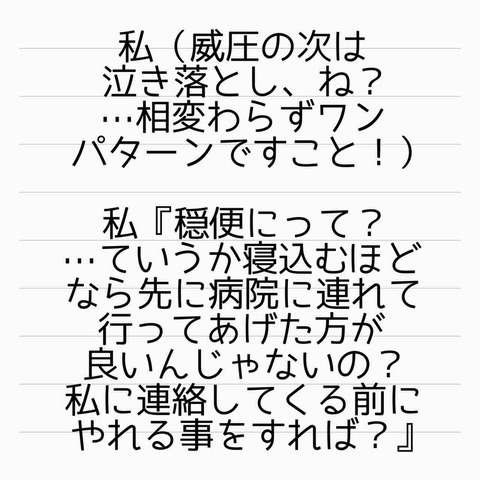 私（威圧の次は
泣き落とし、ね？
…相変わらずワン
パターンですこと！）
私『穏便にって？
…ていうか寝込むほど
なら先に病院に連れて
行ってあげた方が
良いんじゃないの？
私に連絡してくる前に
やれる事をすれば？』